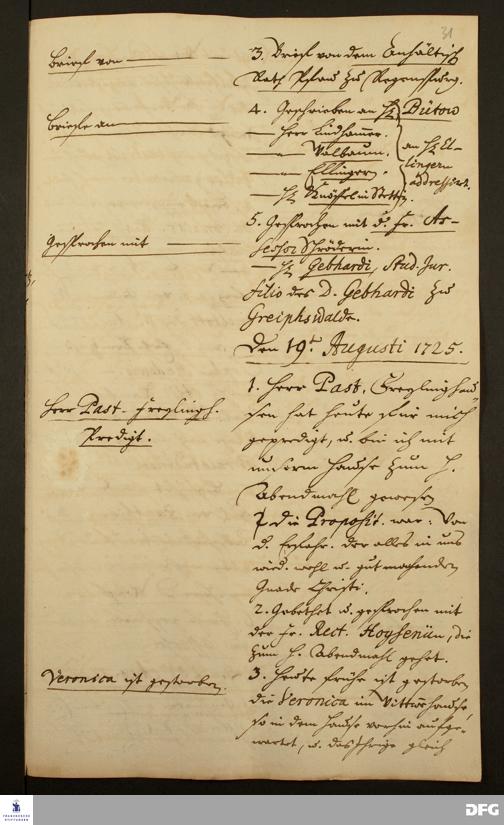 31
Briefe von
3. Brief von dem Anhältisch
Rath Pfau zu Regenspurg.
Briefe an
4. Geschrieben an H. Bütow
— Herr Lindhammer.
— Walbaum.
— Ellinger.
an H. El-
lingern
addressirt.
— H. Knöffel in Stettin.
Gesprochen mit
5. Gesprochen mit d. Fr. As-
sessor Schröderin.
— H. Gebhardi, Stud. Jur.
Filio des D. Gebhardi zu
Greiphswalde.
Den 19t. Augusti 1725.
Herr Past. Freylingh.
Predigt.
1. Herr Past. Freylinghau-
sen hat heute für mich
gepredigt, u. bin ich mit
unserm Hause zum H.
Abendmahl gewesen
Die Proposit. war: Von
d. Erfahr. der alles in uns
wied. wohl u. gut machenden
Gnade Christi.
2. Gebethet u. gesprochen mit
der Fr. Rect. Hoysenün, die
zum H. Abendmahl gehet.
Veronica ist gestorben.
3. Heute frühe ist gestorben
die Veronica im Wittwenhause,
so in dem Hause vorhin aufge-
wartet, u. das Ihrige gleich
FRANCKESCHE
STIFTUNGEN
DFG